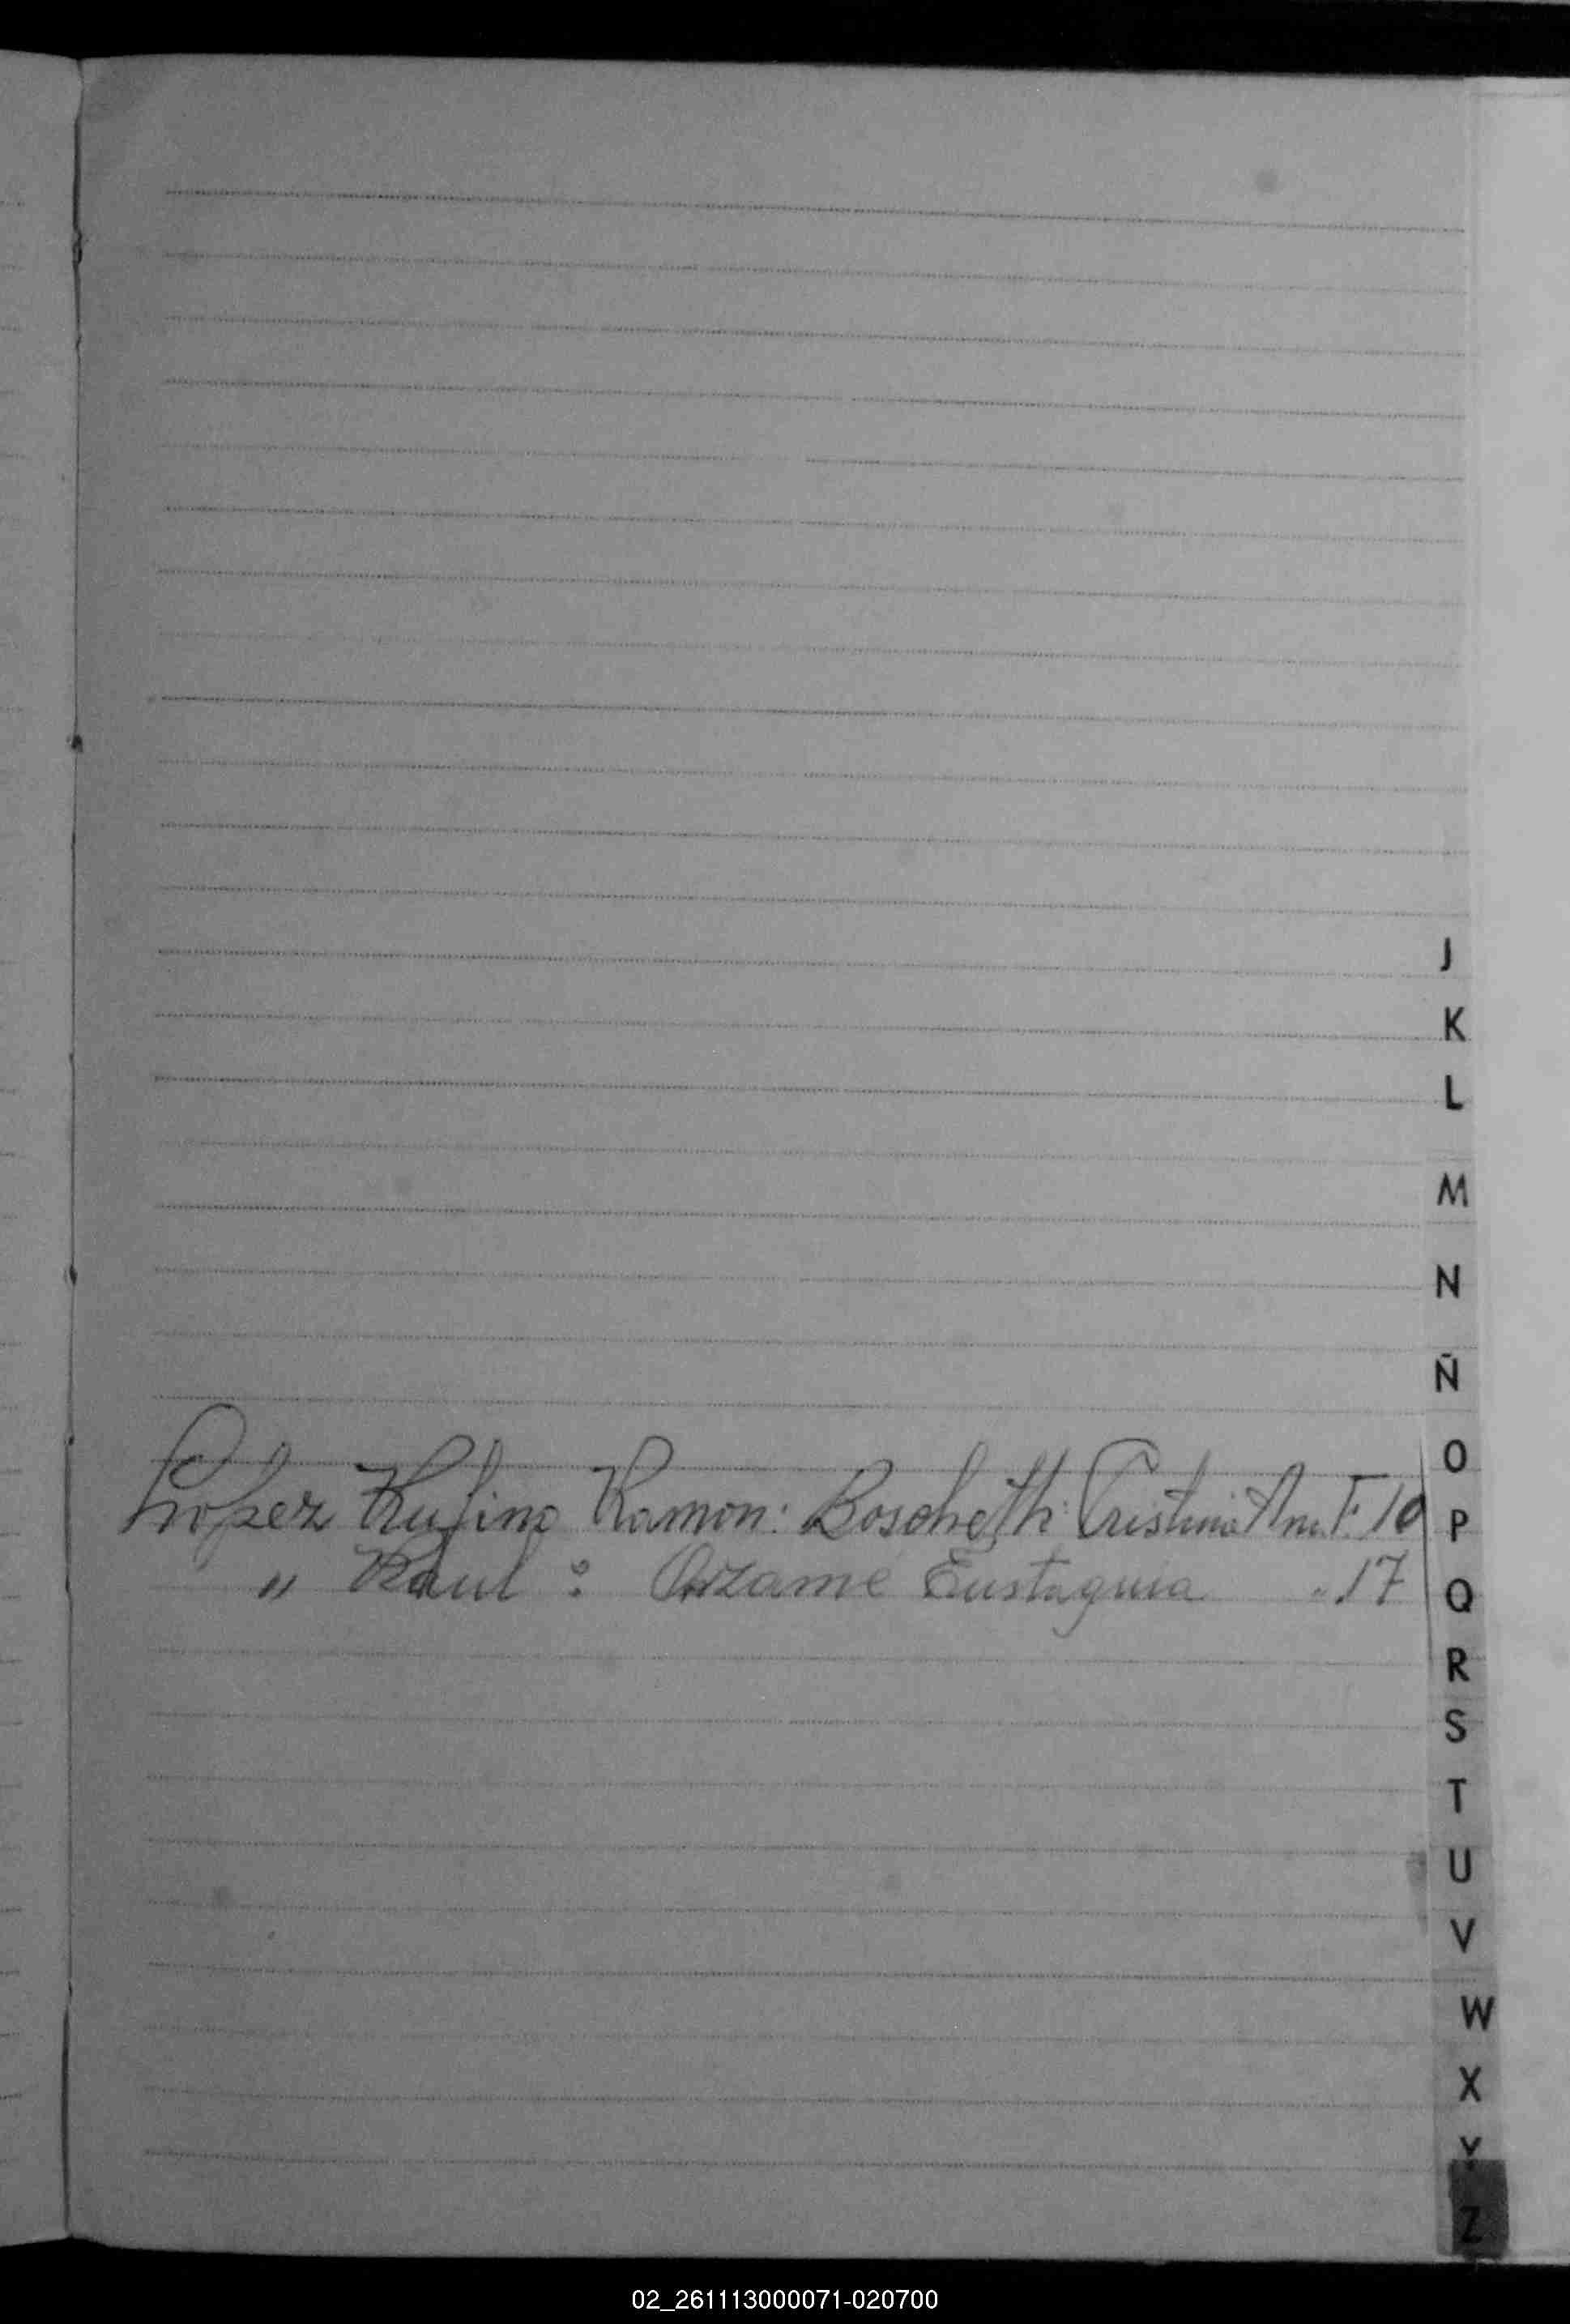 J
K
L
M
N
Ñ
O
Lopez Rufino Ramon: Boschetti Cristina Ana F 10
P
" Raul : Arzamé Eustaquia " 17
Q
R
S
T
U
V
W
X
Y
Z
02_261113000071-020700